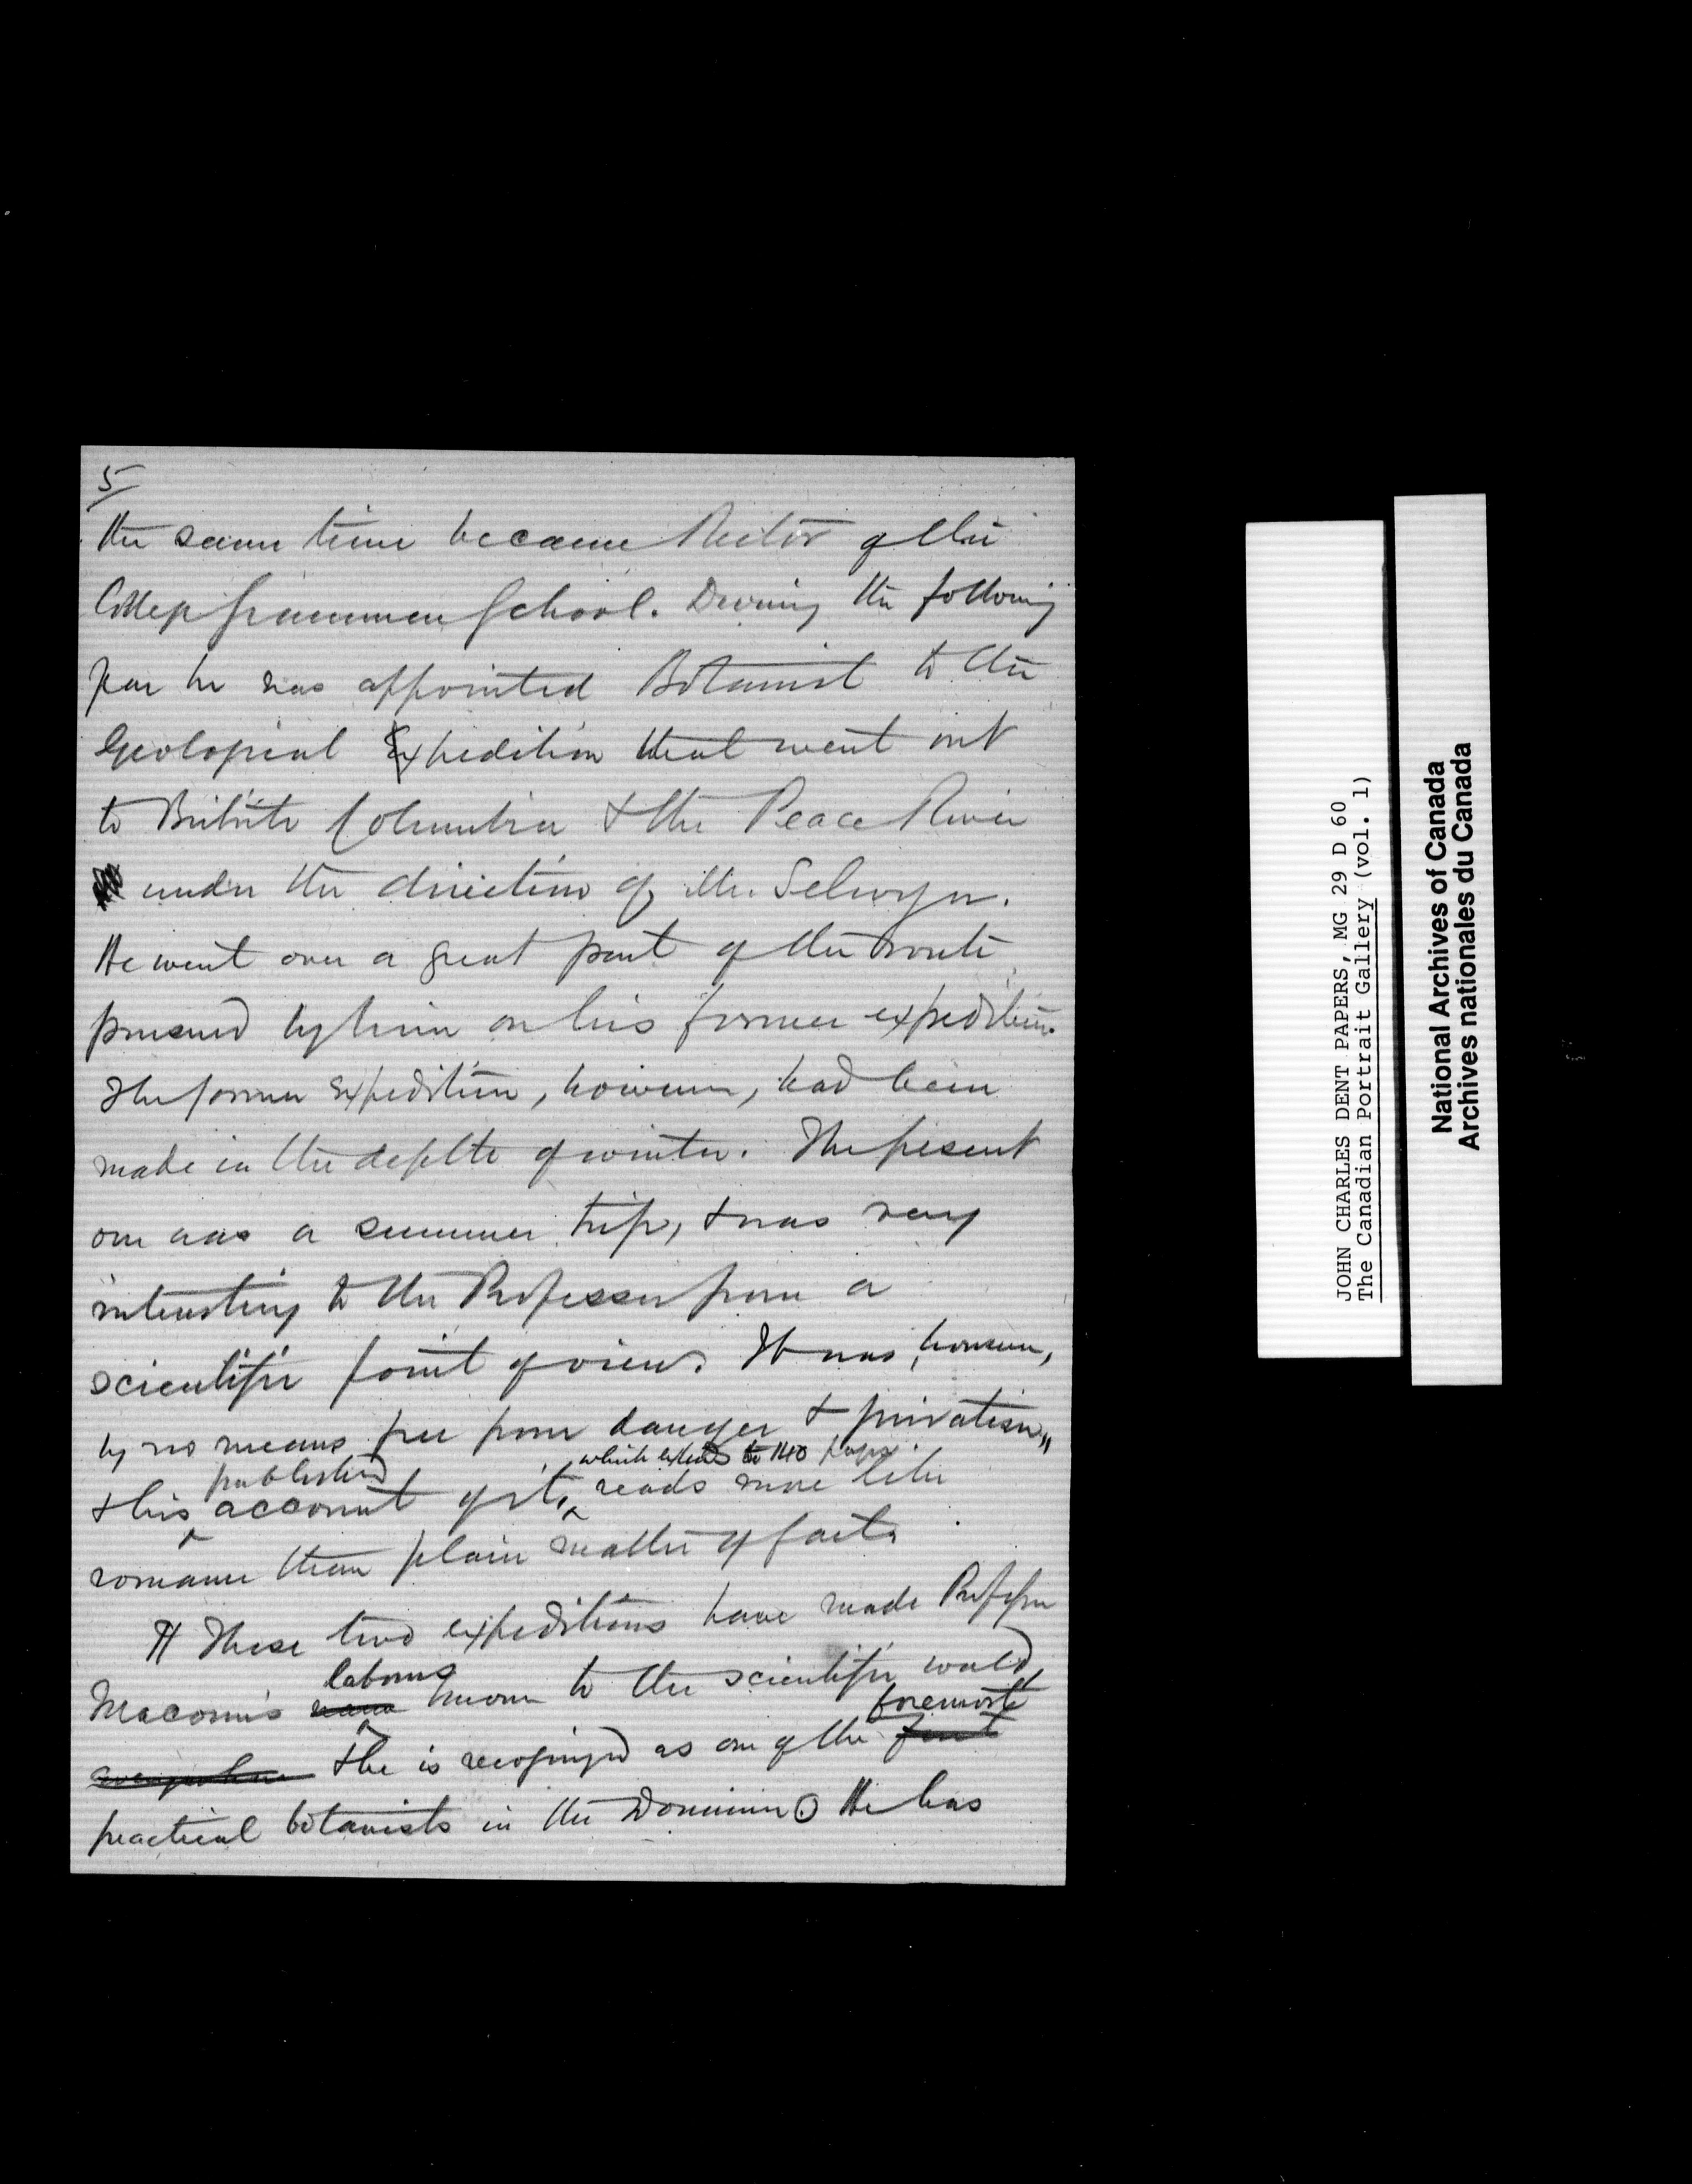 5/
the same time became Rector of the
College Grammar School. During the following
year he was appointed Botanist to the
Geological Expedition that went out
to British Columbia & the Peace River
under the direction of Mr. Selwyn.
He went over a great part of the route
pursued by him on his former expedition.
The former expedition, however, had been
made in the depth of winter. The present
one was a summer trip, & was very
interesting to the Professor from a
scientific point of view. It was, however,
by no means free from danger & privation,
which extends to 140 pages
published
& his account of it, reads more like
romance than plain matter of fact.
These two expeditions have made Professor
labours
Macoun's name known to the scientific world
foremost
everywhere & he is recognized as one of the first
practical botanists in the Dominion. He has
JOHN CHARLES DENT PAPERS, MG 29 D 60
The Canadian Portrait Gallery (vol. 1)
National Archives of Canada
Archives nationales du Canada